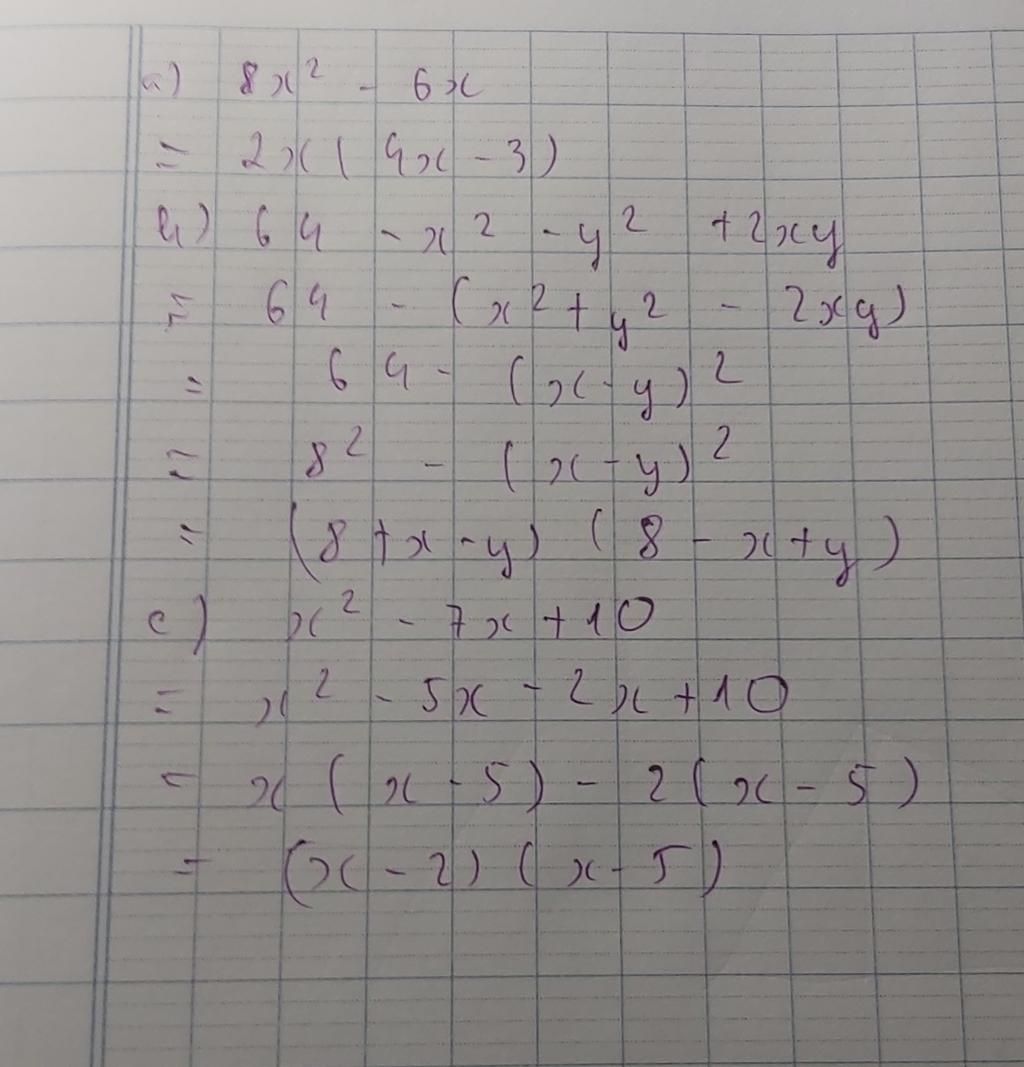 a) 8x² - 6x
= 2x(4x - 3)
b) 64 - x² - y² + 2xy
= 64 - (x² + y² - 2xy)
= 64 - (x - y)²
= 8² - (x - y)²
= (8 + x - y) (8 - x + y)
c) x² - 7x + 10
= x² - 5x - 2x + 10
= x (x - 5) - 2(x - 5)
= (x - 2) (x - 5)